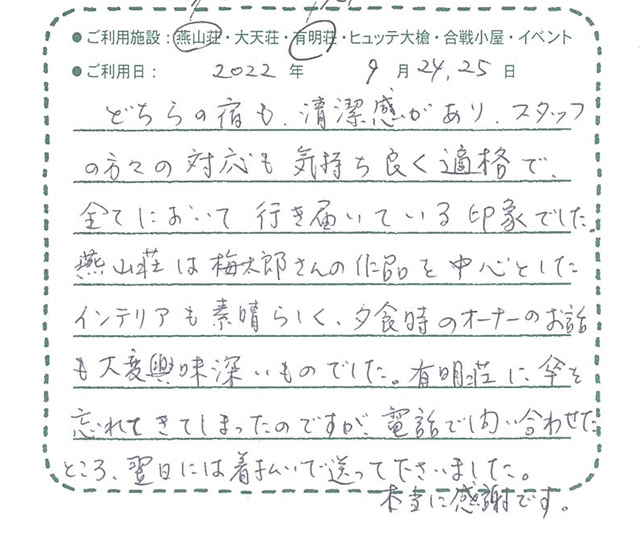 ● ご利用施設：燕山荘・大天荘・有明荘・ヒュッテ大槍・合戦小屋・イベント
● ご利用日： 2022 年 9 月 24, 25 日
どちらの宿も、清潔感があり、スタッフ
の方々の対応も気持ち良く適格で、
全てにおいて行き届いている印象でした。
燕山荘は梅太郎さんの作品を中心とした
インテリアも素晴らしく、夕食時のオーナーのお話
も大変興味深いものでした。有明荘に傘を
忘れてきてしまったのですが、電話で問い合わせた
ところ、翌日には着払いで送って下さいました。
本当に感謝です。